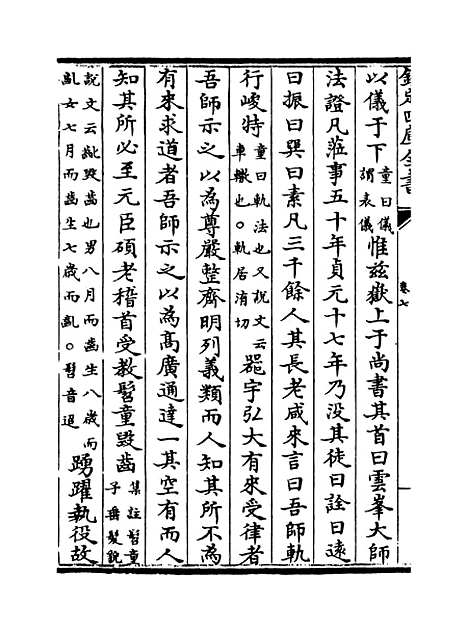 欽定四庫全書
卷七
以儀于下童曰儀謂表儀惟兹嶽上于尚書其首曰雲峯大師
法證凡蒞事五十年貞元十七年乃没其徒曰詮曰遠
曰振曰巽曰素凡三千餘人其長老咸來言曰吾師軌
行峻特童曰軌法也又説文云車轍也○軌居洧切噐宇弘大有來受律者
吾師示之以為尊嚴整齊明列義類而人知其所不為
有來求道者吾師示之以為高廣通達一其空有而人
知其所必至元臣碩老稽首受教髫童毁齒集註髫童子垂髪貌
説文云齔毁齒也男八月而齒生八歲而齔女七月而齒生七歲而齔○髫音迢踴躍執役故